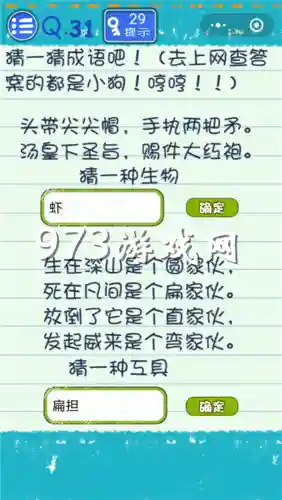 Q.31
29
提示
猜一猜成语吧！（去上网查答
案的都是小狗！哼哼！！）
头带尖尖帽，手执两把矛。
汤皇下圣旨，赐件大红袍。
猜一种生物
虾
确定
973游戏网
生在深山是个圆家伙，
死在凡间是个扁家伙。
放倒了它是个直家伙，
发起威来是个弯家伙。
猜一种工具
扁担
确定